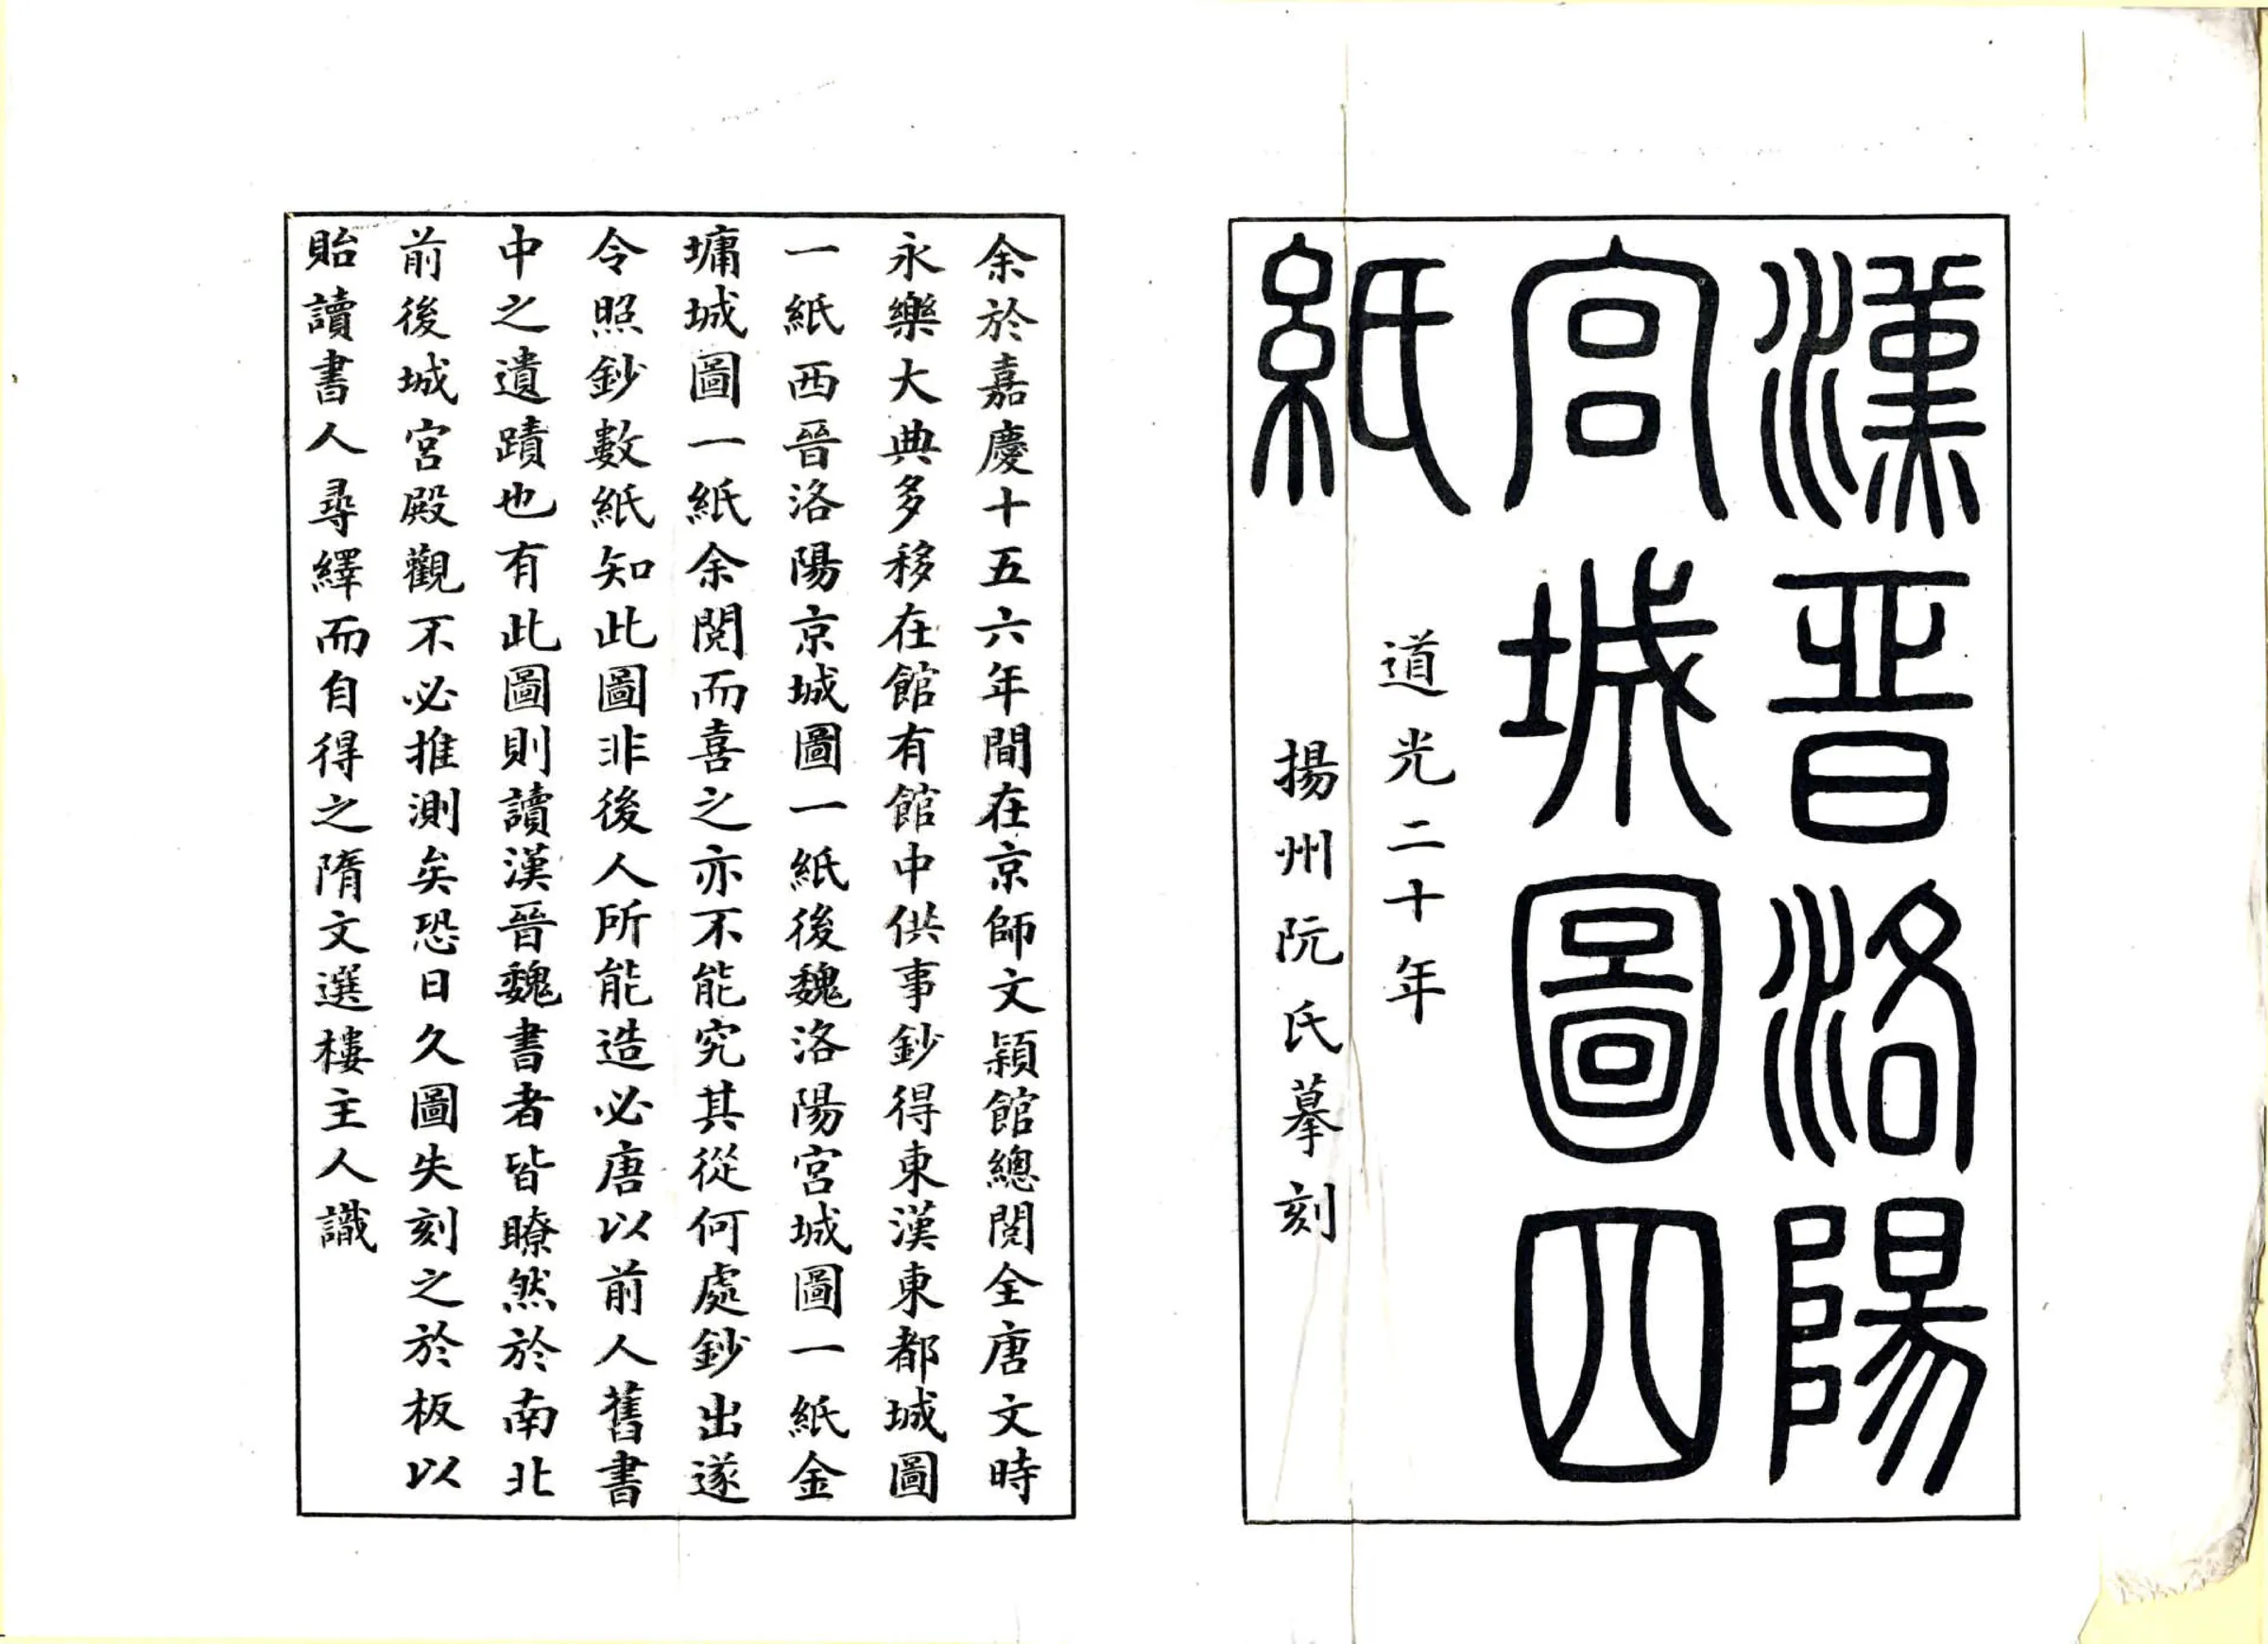 漢晋洛陽
宫城圖四
紙
道光二十年
揚州阮氏摹刻
余於嘉慶十五六年間在京師文穎館總閱全唐文時
永樂大典多移在館有館中供事鈔得東漢東都城圖
一紙西晉洛陽京城圖一紙後魏洛陽宮城圖一紙金
墉城圖一紙余閱而喜之亦不能究其從何處鈔出遂
令照鈔數紙知此圖非後人所能造必唐以前人舊書
中之遺蹟也有此圖則讀漢晉魏書者皆瞭然於南北
前後城宮殿觀不必推測矣恐日久圖失刻之於板以
貽讀書人尋繹而自得之隋文選樓主人識